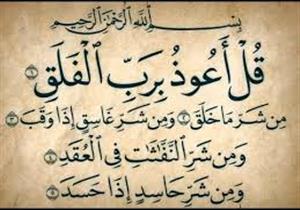 بِسْمِ ٱللَّهِ ٱلرَّحْمَٰنِ ٱلرَّحِيمِ
قُلْ أَعُوذُ بِرَبِّ ٱلْفَلَقِ ١
مِن شَرِّ مَا خَلَقَ ٢ وَمِن شَرِّ غَاسِقٍ إِذَا وَقَبَ ٣
وَمِن شَرِّ ٱلنَّفَّٰثَٰتِ فِي ٱلْعُقَدِ ٤
وَمِن شَرِّ حَاسِدٍ إِذَا حَسَدَ ٥